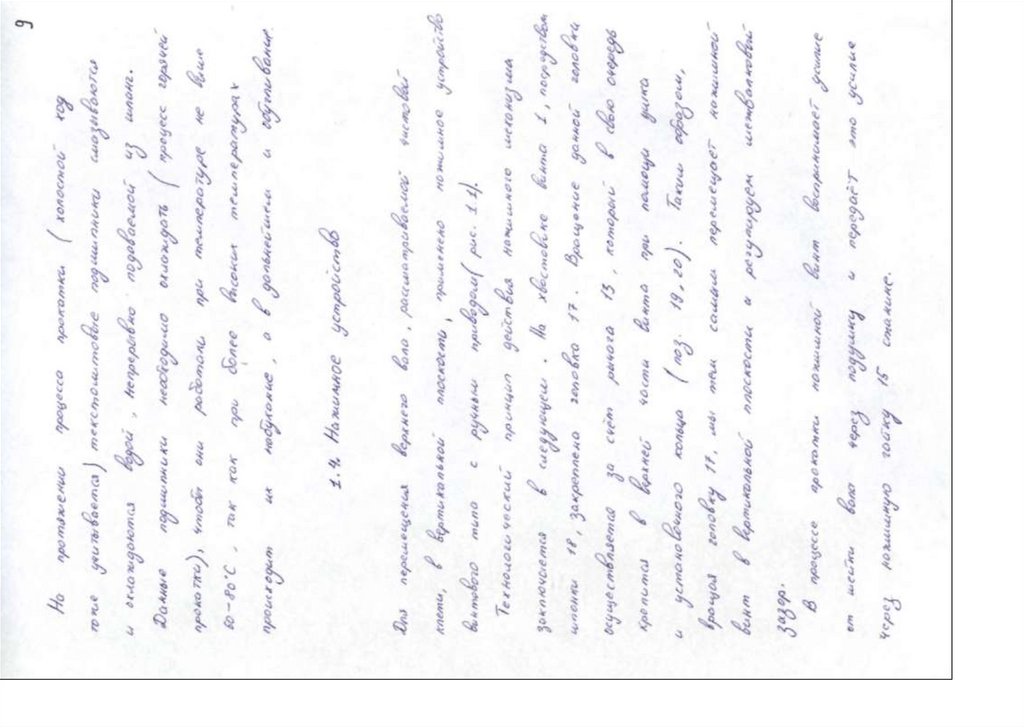 9
На протяжении процесса прокатки (холостой ход
тоже учитывается) текстолитовые подшипники смазываются
и охлаждаются водой, непрерывно подаваемой из шланг.
Данные подшипники необходимо охлаждать (процесс горячей
прокатки), чтобы они работали при температуре не выше
60-80°С, так как при более высоких температурах
происходит их набухание, а в дальнейшем и обугливание.
1.4. Нажимное устройство
Для перемещения верхнего вала, рассматриваемой чистовой
клети, в вертикальной плоскости, применено нажимное устройство
винтового типа с ручным приводом (рис. 1.4).
Технологический принцип действия нажимного механизма
заключается в следующем. На хвостовике винта 1, посредством
шпонки 18, закреплена головка 17. Вращение данной головки
осуществляется за счёт рычага 13, который в свою очередь
крепится в верхней части винта при помощи
и установочного кольца (поз. 19, 20). Таким образом,
вращая головку 17, мы тем самым перемещает нажимной
винт в вертикальной плоскости и регулируем межвалковый
зазор.
В процессе прокатки нажимной винт воспринимает усилие
от шейки вала через подушку и передаёт это усилие
через нажимную гайку 15 станине.